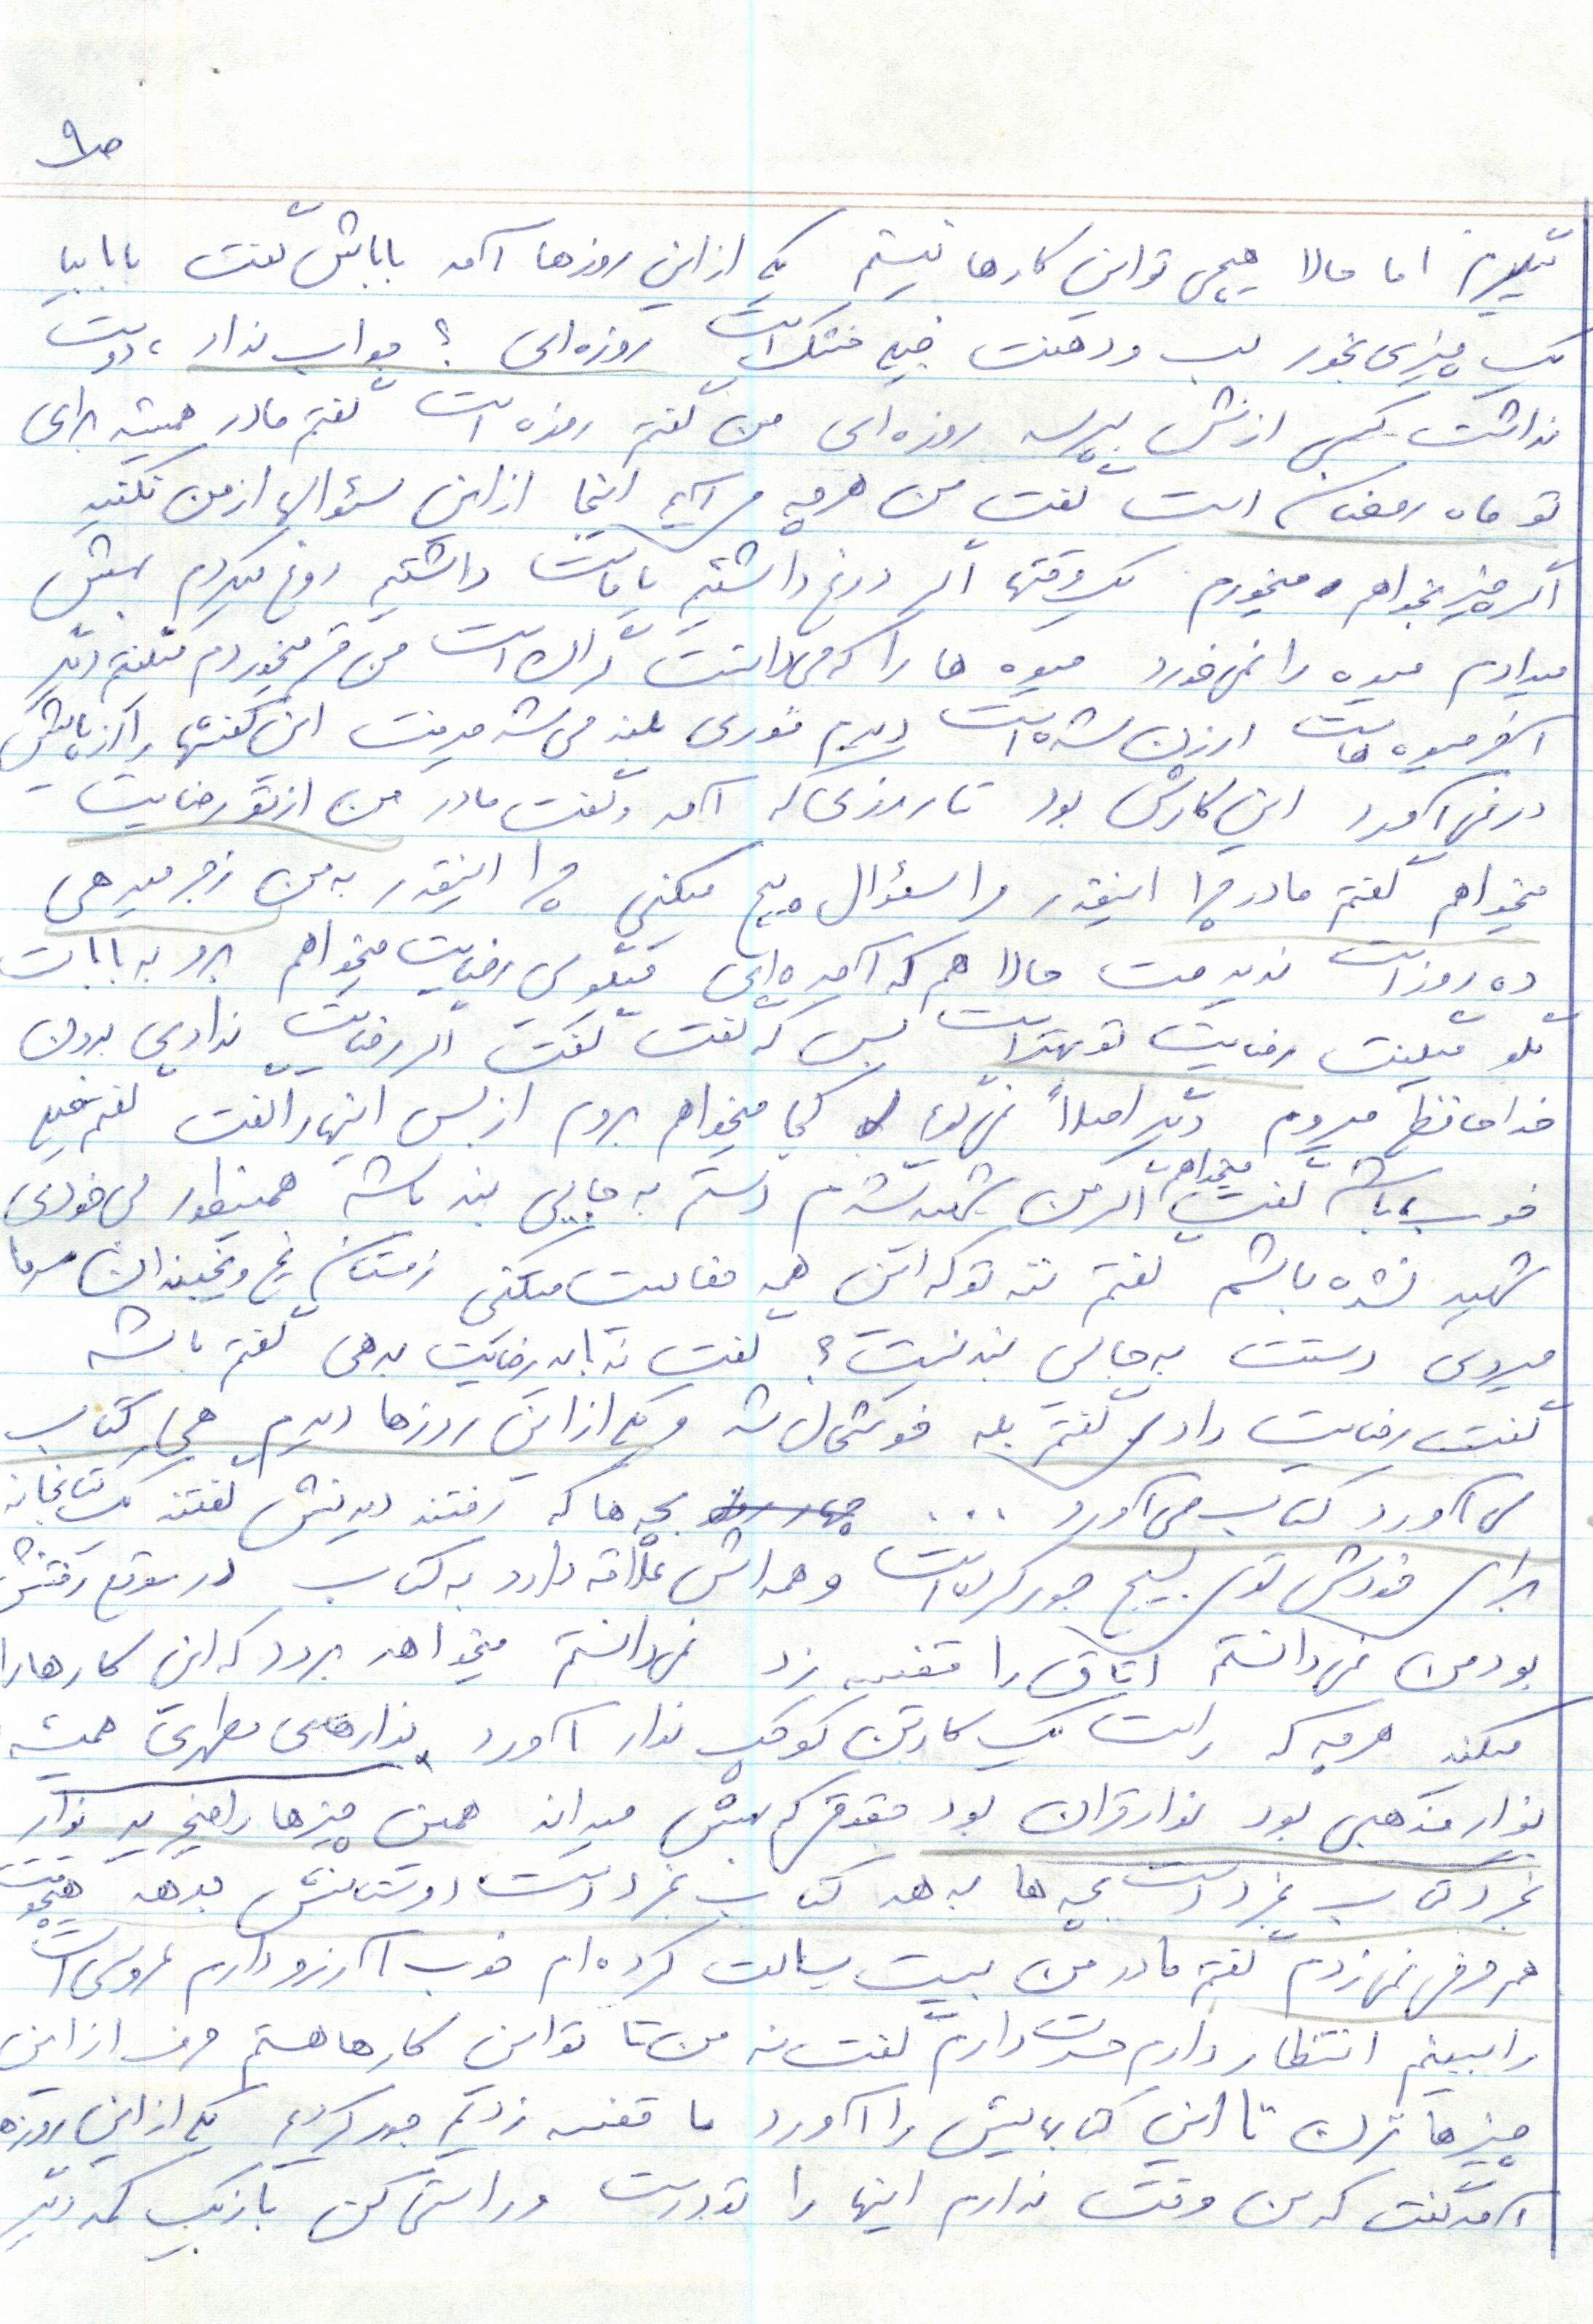 ص۹
بگیرم اما حالا هیچی تو این کارها نیستم یکی از این روزها آمد باباش گفت بابا بیا
یک چیزی بخور لب و دهنت خیلی خشک است روزه‌ای ؟ جواب نداد، دوست
نداشت کسی ازش بپرسه روزه‌ای من گفتم روزه است گفتم مادر همیشه برای
تو ماه رمضان است گفت من هرچه می آیم اینجا از این سؤالها از من نکنید
اگر چیز بخواهم میخورم یک وقتها اگر دوغ داشتیم یا ماست داشتیم دوغ میکردم بهش
میدادم میوه را نمی خورد میوه ها را که می دانست گران است من میخوردم میگفتم دیگر
آخر میوه هاست ارزان شده است دیدم فوری بلند می شد میرفت این کفشها را از پایش
در نمی آورد این کارش بود تا روزی که آمد و گفت مادر من از تو رضایت
میخواهم گفتم مادر چرا اینقدر مرا سؤال پیچ میکنی چرا اینقدر به من زجر میدهی
ده روز است ندیدمت حالا هم که آمده ای میگوئی رضایت میخواهم برو به بابات
بگو میگفت رضایت تو بهتر است بس که گفت گفت اگر رضایت نداری بدون
خداحافظی میروم دیگر اصلاً نمی گویم کجا میخواهم بروم از بس اینها را گفت گفتم خیلی
خوب باشه گفت میخواهم اگر من شهید شدم دستم به جایی بند باشه همینطور بی خودی
شهید نشده باشم گفتم ننه تو که این همه فعالیت میکنی زمستان یخ و یخبندان سرما
میروی دستت به جایی بند نیست؟ گفت نه باید رضایت بدهی گفتم باشه
گفت رضایت دادی گفتم بله خوشحال شد و یکی از این روزها دیدم هی کتاب
می آورد کتاب می آورد ... بچه ها که رفتند دیدنش گفتند یک کتابخانه
برای خودش توی بسیج جور کرده است و همه اش علاقه دارد به کتاب در موقع رفتنش
بود من نمی دانستم اتاق را قفسه زد نمی دانستم میخواهد برود که این کارها را
میکند هرچه که داشت یک کارتن کوچک نوار آورد نوارهای مطهری همیشه
نوار مذهبی بود نوار قرآن بود حقوق که بهش میدادند همین چیزها را میخرید نوار
بخرد کتاب بخرد است بچه ها بدهد کتاب بخرد دست دوستانش بدهد هیچوقت
هم حرفی نمی زدم گفتم مادر من بیست سالت کرده ام خوب آرزو دارم عروسی ات
را ببینم انتظار دارم حسرت دارم گفت نه من تا تو این کارها هستم حرف از این
چیزها نزن تا این کتابهایش را آورد ما قفسه زدیم جور کردیم یکی از این روزها
آمد گفت که من وقت ندارم اینها را تو درست و راستی کن باز یک کمد دیگر